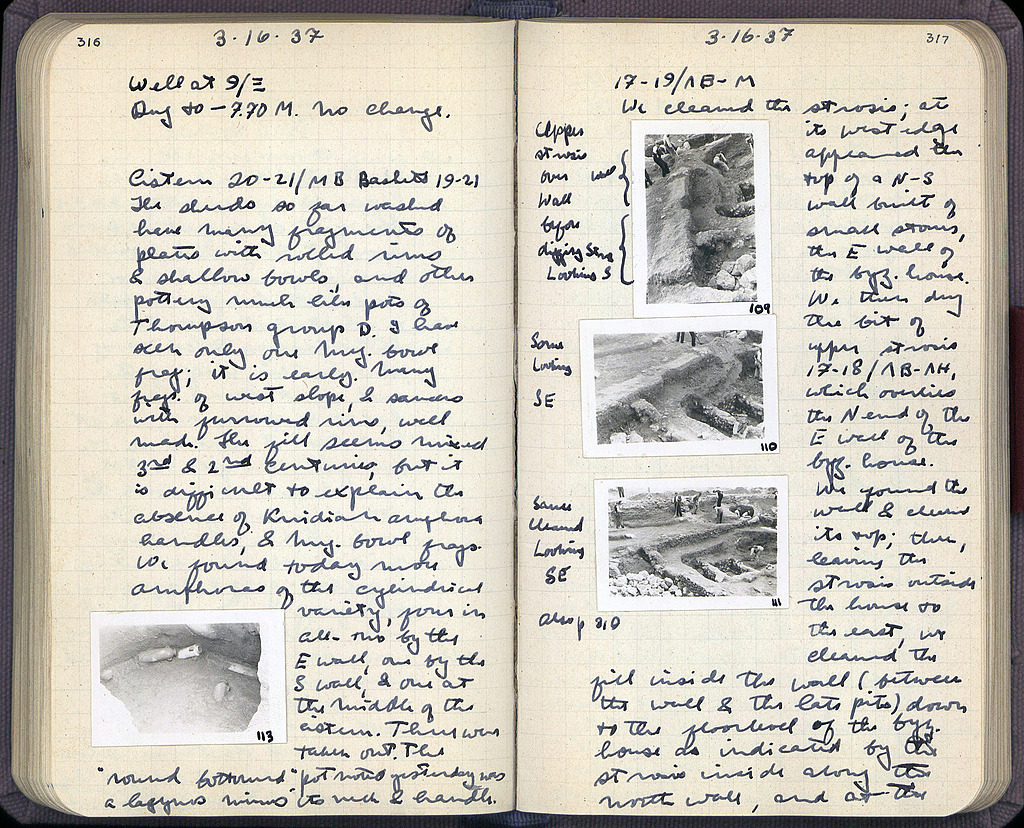 316
3·16·37
Well at 9/Ξ
Dug to -7.70 M. No change.
Cistern 20-21/ΜΒ Baskets 19-21
The sherds so far washed
have many fragments of
plates with rolled rims
& shallow bowls, and other
pottery much like pots of
Thompson group D. I have
seen only one Meg. bowl
frag; it is early. Many
frags. of west slope, & saucers
with furrowed rims, well
made. The fill seems mixed
3rd & 2nd centuries, but it
is difficult to explain the
absence of Knidian amphora
handles, & Meg. bowl frags.
We found today more
amphoras of the cylindrical
variety, four in
all - two by the
E wall, one by the
S wall, & one at
the middle of the
cistern. These were
taken out. The
"round bottomed" pot noted yesterday was
a lagynos minus its neck & handle.
113
3·16·37
317
17-19/ΛΒ-Μ
We cleaned the strosis; at
its west edge
appeared the
top of a N-S
wall built of
small stones,
the E wall of
the byz. house.
We then dug
the bit of
upper strosis
17-18/ΛΒ-ΛΗ,
which overlies
the N end of the
E wall of the
byz. house.
We found the
wall & cleared
its top; then,
leaving the
strosis outside
the house to
the east, we
cleaned the
fill inside the wall (between
the wall & the late pits) down
to the floor level of the byz.
house as indicated by the
strosis inside along the
north wall, and at the
Upper
strosis
over wall
Wall
before
digging strosis
Looking S
109
Same
Looking
SE
110
Same
cleaned
Looking
SE
111
also p 310